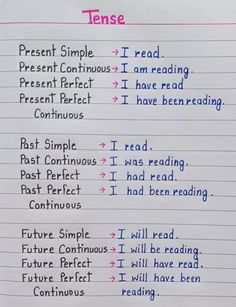 Tense
Present Simple → I read.
Present Continuous → I am reading.
Present Perfect → I have read
Present Perfect → I have been reading.
Continuous
Past Simple → I read.
Past Continuous → I was reading.
Past Perfect → I had read.
Past Perfect → I had been reading.
Continuous
Future Simple → I will read.
Future Continuous → I will be reading.
Future Perfect → I will have read.
Future Perfect → I will have been
Continuous reading.